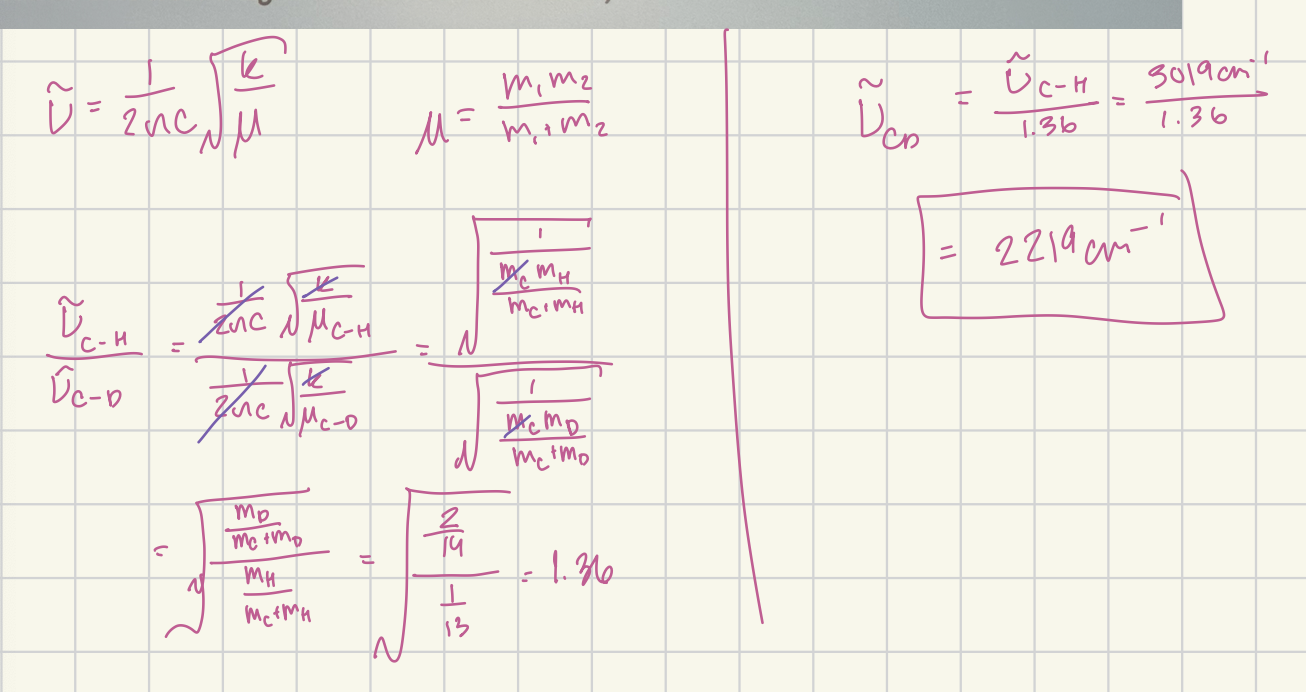 ν̃ = 1/(2πc) √(k/μ)
μ = m₁m₂/(m₁+m₂)
ν̃C-H/ν̃C-D = (1/(2πc) √(k/μC-H))/(1/(2πc) √(k/μC-D)) = √(1/(mCmH/(mC+mH)))/√(1/(mCmD/(mC+mD)))
= √((mD/(mC+mD))/(mH/(mC+mH))) = √((2/14)/(1/13)) = 1.36
ν̃CD = ν̃C-H/1.36 = 3019cm⁻¹/1.36
= 2219cm⁻¹